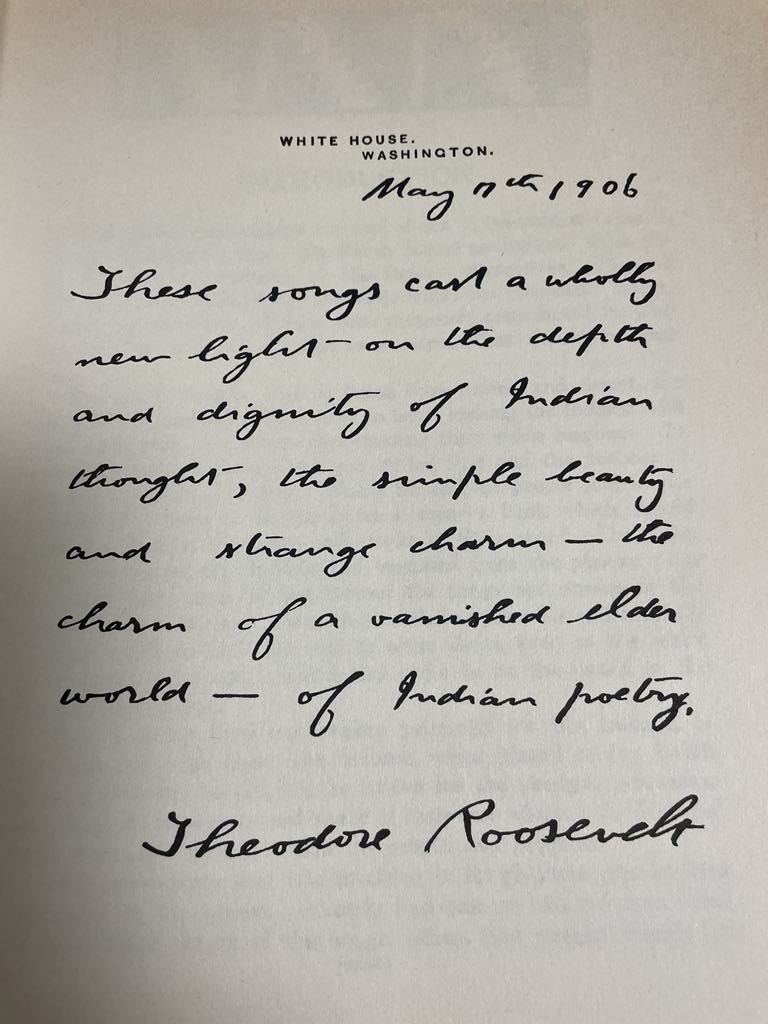 WHITE HOUSE.
WASHINGTON.
May 17th 1906
These songs cast a wholly
new light on the depth
and dignity of Indian
thought, the simple beauty
and strange charm — the
charm of a vanished elder
world — of Indian poetry.
Theodore Roosevelt